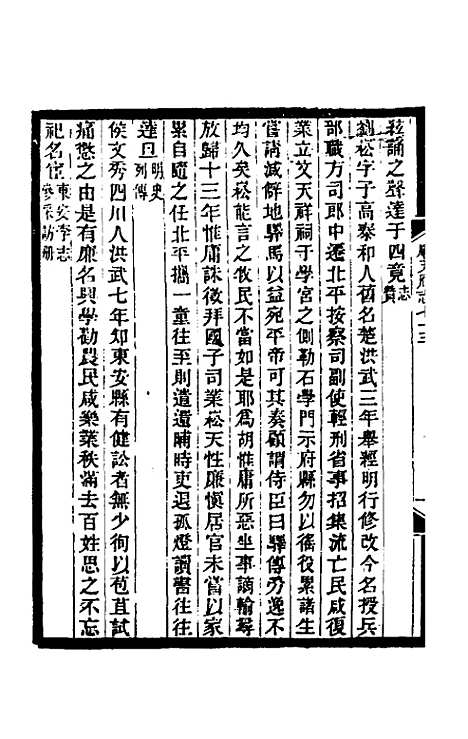 絃誦之聲達于四竟畿志
劉崧字子高泰和人舊名楚洪武三年舉經明行修改今名授兵
部職方司郎中遷北平按察司副使輕刑省事招集流亡民咸復
業立文天祥祠于學宮之側勒石學門示府縣勿以徭役累諸生
嘗請減僻地驛馬以益宛平帝可其奏顧謂侍臣曰驛傳勞逸不
均久矣崧能言之牧民不當如是耶為胡惟庸所惡坐事謫輸尋
放歸十三年惟庸誅徵拜國子司業崧天性廉慎居官未嘗以家
累自隨之任北平攜一童往至則遣還晡時吏退孤燈讀書往往
達旦明史列傳
侯文秀四川人洪武七年知東安縣有健訟者無少徇以苞苴試
痛懲之由是有廉名興學勸農民咸樂業秩滿去百姓思之不忘
祀名宦東安李志參采訪冊
順天府志七十三